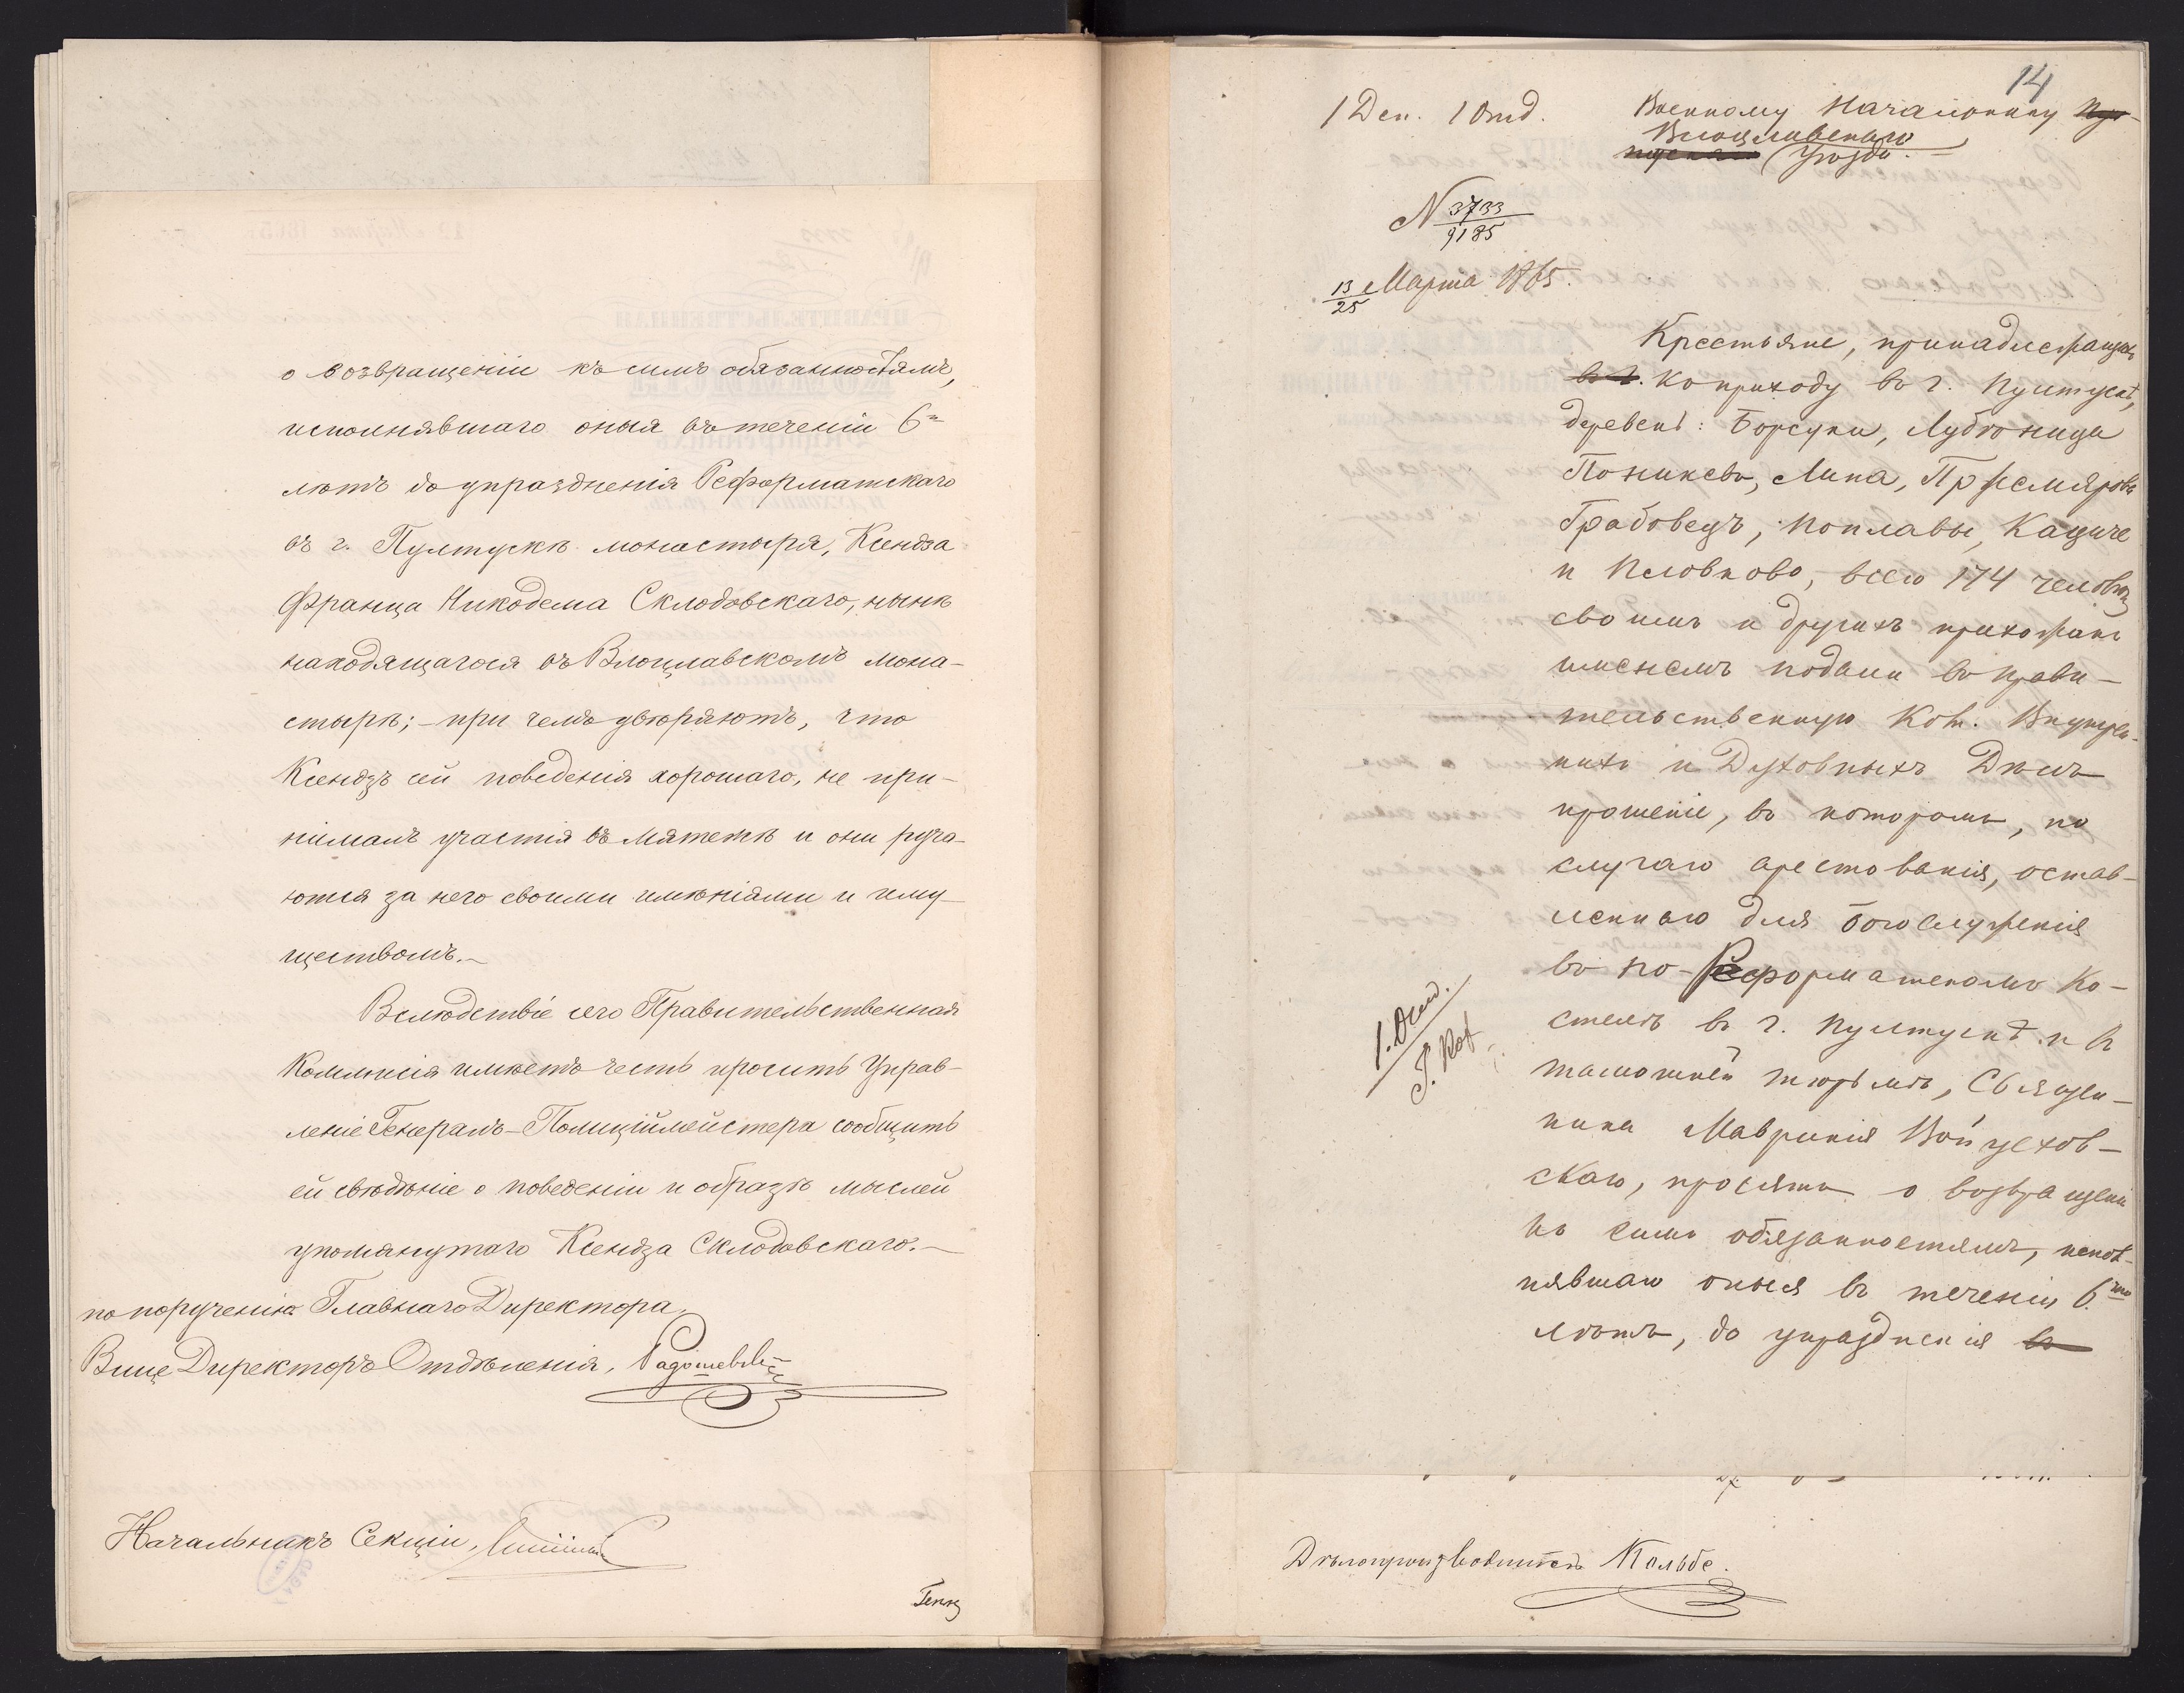 о возвращеніи къ симъ обязанностямъ,
исполнявшаго оныя въ теченіи 6ти
лѣтъ до упраздненія Реформатскаго
въ г. Пултускѣ монастыря, Ксендза
Франца Никодема Склодовскаго, нынѣ
находящагося въ Влоцлавскомъ мона-
стырѣ; – при чемъ увѣряютъ, что
Ксендзъ сей поведенія хорошаго, не при-
нималъ участія въ мятежѣ и они руча-
ются за него своими имѣніями и иму-
ществомъ. –
Вслѣдствіе сего Правительственная
Коммисія имѣетъ честь просить Управ-
леніе Генералъ-Полиціймейстера сообщить
ей свѣдѣніе о поведеніи и образѣ мыслей
упомянутаго Ксендза Склодовскаго. –
по порученію Главнаго Директора,
Вице Директоръ Отдѣленія,
Начальникъ Секціи,
14
1 Деп. 1 Отд.
Военному Начальнику
Влоцлавскаго
Уѣзда.
N 3733
9185
13/25 Марта 1865.
Крестьяне, принадлежащіе
въ г. Къ приходу въ г. Пултускѣ,
деревень: Борсуки,
Поникевъ, Липа,
Грабовецъ, Поплавы, Кацице
и Псовково, всего 174 человѣкъ
своимъ и другихъ прихожанъ
именемъ подали въ Прави-
тельственную Ком. Внутрен-
нихъ и Духовныхъ Дѣлъ
прошеніе, въ которомъ, по
случаю арестованія, остав-
леннаго для богослуженія
въ по-Реформатскомъ Ко-
стелѣ въ г. Пултускѣ и въ
тамошней тюрьмѣ, Священ-
ника Маврикія Войцехов-
скаго, просятъ о возвращеніи
къ симъ обязанностямъ, испол-
нявшаго оныя въ теченіи 6.ти
лѣтъ, до упраздненія въ
1. Отд.
Дѣлопроизводитель Кольбе.